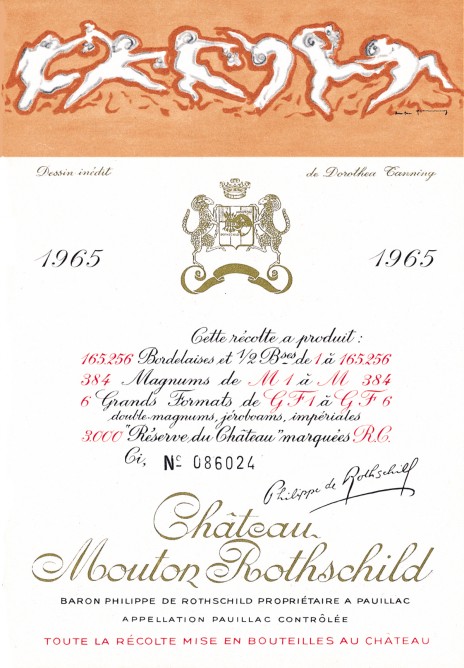 Dessin inédit de Dorothea Tanning
1965 1965
Cette récolte a produit :
165.256 Bordelaises et 1/2 Bses de 1 à 165.256
384 Magnums de M 1 à M 384
6 Grands Formats de G F 1 à G F 6
double-magnums, jéroboams, impériales
3.000 "Réserve du Château" marquées R.C.
Ci, No 086024
Philippe de Rothschild
Château
Mouton Rothschild
BARON PHILIPPE DE ROTHSCHILD PROPRIÉTAIRE A PAUILLAC
APPELLATION PAUILLAC CONTRÔLÉE
TOUTE LA RÉCOLTE MISE EN BOUTEILLES AU CHÂTEAU